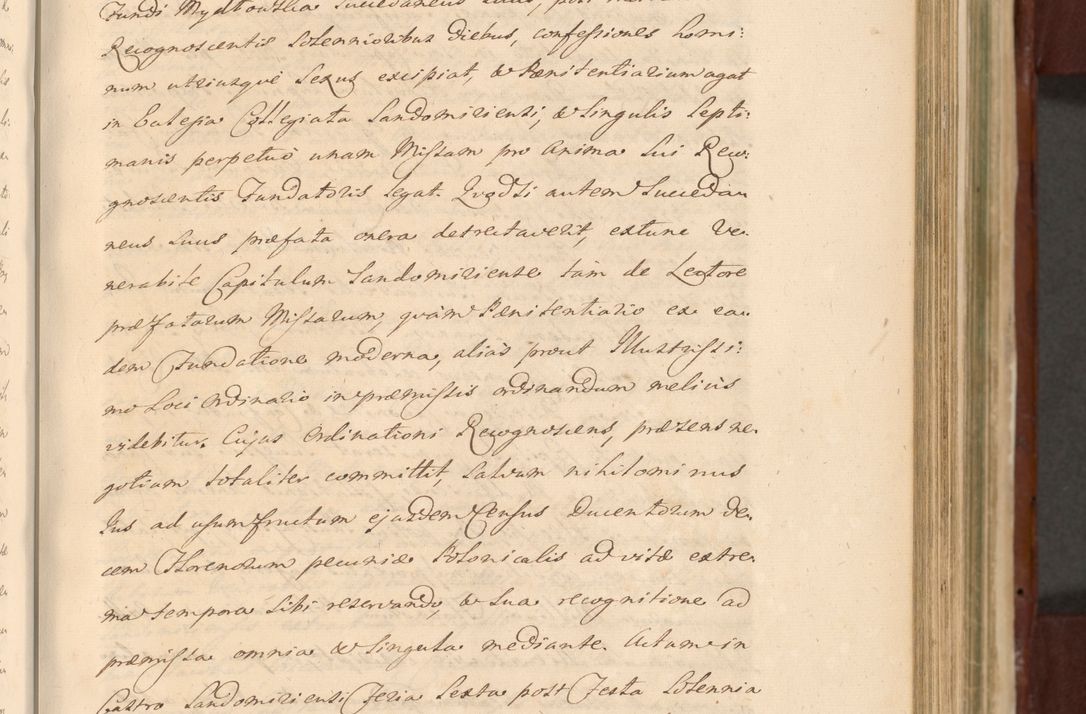 Recognoscentis Solennioribus diebus, confessiones homi:
num utriusque Sexus excipiat, & Pænitentiarium agat
in Eclesia Collegiata Sandomiriensi, & Singulis Septi:
manis perpetuò unam Missam pro Anima Sui Reco:
gnoscentis Fundatoris legat. Quodsi autem Succeda
neus Suus præfata onera detrectaverit, extunc Ve.
nerabile Capitulum Sandomiriense tàm de Lectore
præfatarum Missarum, quàm Pænitentiario ex ea
dem Fundatione moderna, aliàs prout Illustrissi:
mo Loci Ordinario in præmissis ordinandum melius
videbitur. Cujus Ordinationi Recognoscens, præsens ne.
gotium totaliter committit, Salvum nihilominus
Jus ad usumfructum ejusdem Censûs Ducentorum de.
cem Florenorum pecuniæ Polonicalis ad vitæ extre.
ma tempora Sibi reservando, & Sua recognitione ad
præmissa omnia & Singula mediante. Actum in
Castro Sandomiriensi Feria Sexta post Festa Solennia